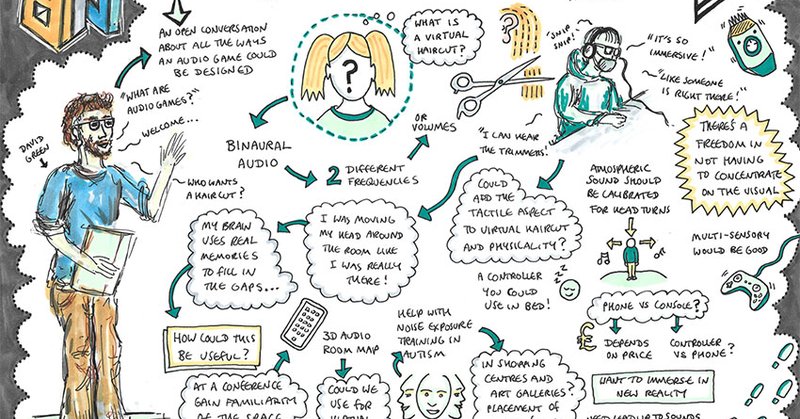 AN OPEN CONVERSATION
ABOUT ALL THE WAYS
AN AUDIO GAME COULD
BE DESIGNED
"WHAT ARE
AUDIO GAMES?"
WELCOME...
DAVID
GREEN
WHO WANTS
A HAIRCUT?
?
WHAT IS
A VIRTUAL
HAIRCUT?
BINAURAL
AUDIO
2 DIFFERENT
FREQUENCIES
OR
VOLUMES
"SNIP
SNIP!"
"IT'S SO
IMMERSIVE!"
"LIKE SOMEONE
IS RIGHT THERE!"
"I CAN HEAR
THE TRIMMERS!"
THERE'S A
FREEDOM IN
NOT HAVING
TO CONCENTRATE
ON THE VISUAL
ATMOSPHERIC
SOUND SHOULD
BE CALIBRATED
FOR HEAD TURNS
OFF
MULTI-SENSORY
WOULD BE GOOD
MY BRAIN
USES REAL
MEMORIES
TO FILL IN
THE GAPS...
I WAS MOVING
MY HEAD AROUND
THE ROOM LIKE
I WAS REALLY
THERE!
COULD
ADD THE
TACTILE ASPECT
TO VIRTUAL HAIRCUT
AND PHYSICALITY?
A CONTROLLER
YOU COULD
USE IN BED!
ZZZ
PHONE VS CONSOLE?
£
DEPENDS
ON PRICE
CONTROLLER
VS PHONE?
HOW COULD THIS
BE USEFUL?
3D AUDIO
ROOM MAP
HELP WITH
NOISE EXPOSURE
TRAINING IN
AUTISM
AT A CONFERENCE
GAIN FAMILIARITY
OF THE SPACE
COULD WE
USE FOR
VIRTUAL
IN SHOPPING
CENTRES AND
ART GALLERIES?
PLACEMENT OF
WANT TO IMMERSE IN
NEW REALITY
NEED LEAD UP TO SOUNDS